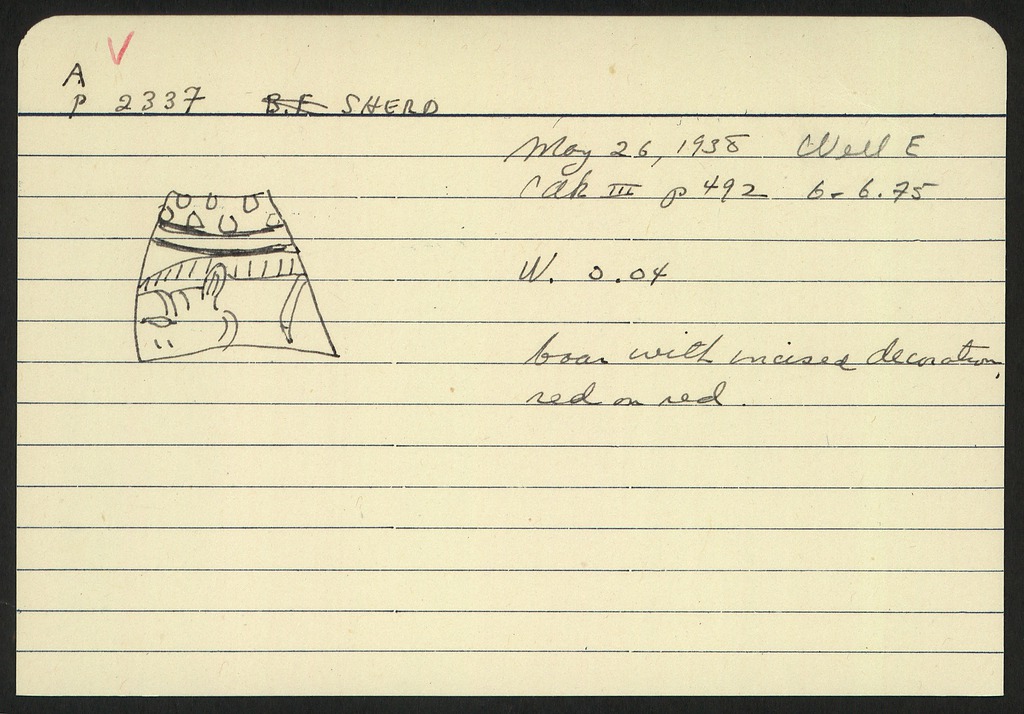 A
P 2337 B.F. SHERD
May 26, 1938 Well E
III p 492 6-6.75
W. 0.04
boar with incised decoration,
red on red.